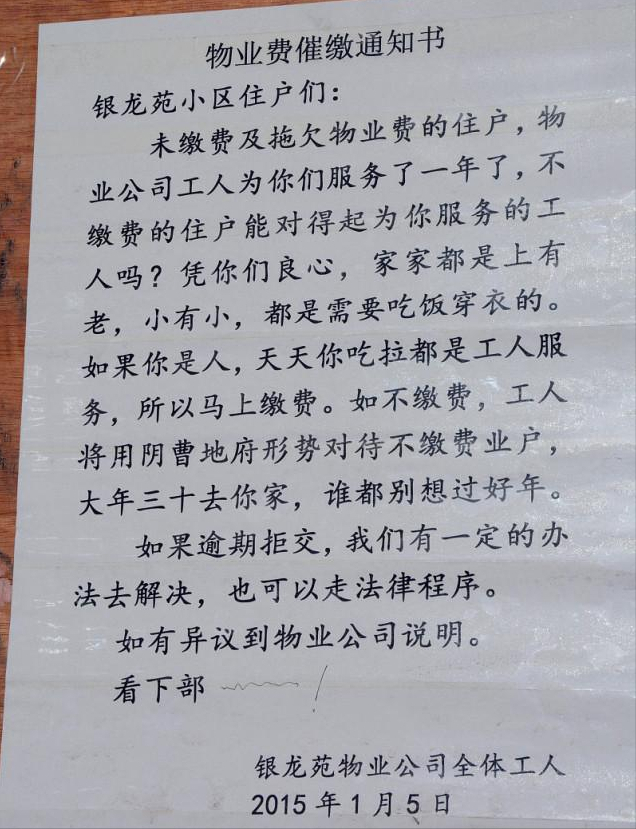 物业费催缴通知书
银龙苑小区住户们：
未缴费及拖欠物业费的住户，物
业公司工人为你们服务了一年了，不
缴费的住户能对得起为你服务的工
人吗？凭你们良心，家家都是上有
老，小有小，都是需要吃饭穿衣的。
如果你是人，天天你吃拉都是工人服
务，所以马上缴费。如不缴费，工人
将用阴曹地府形势对待不缴费业户，
大年三十去你家，谁都别想过好年。
如果逾期拒交，我们有一定的办
法去解决，也可以走法律程序。
如有异议到物业公司说明。
看下部
银龙苑物业公司全体工人
2015年1月5日